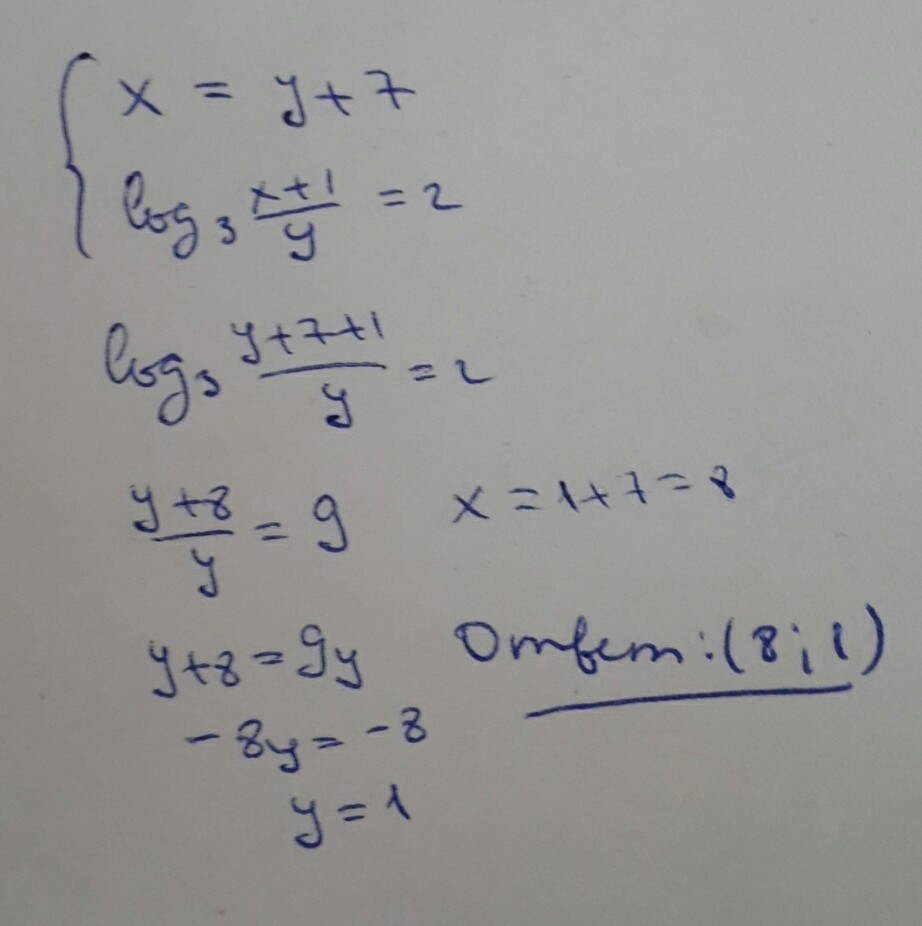 x = y+7
log₃ (x+1)/y = 2
log₃ (y+7+1)/y = 2
(y+8)/y = 9
x = 1+7 = 8
y+8 = 9y
Ответ: (8; 1)
-8y = -8
y = 1